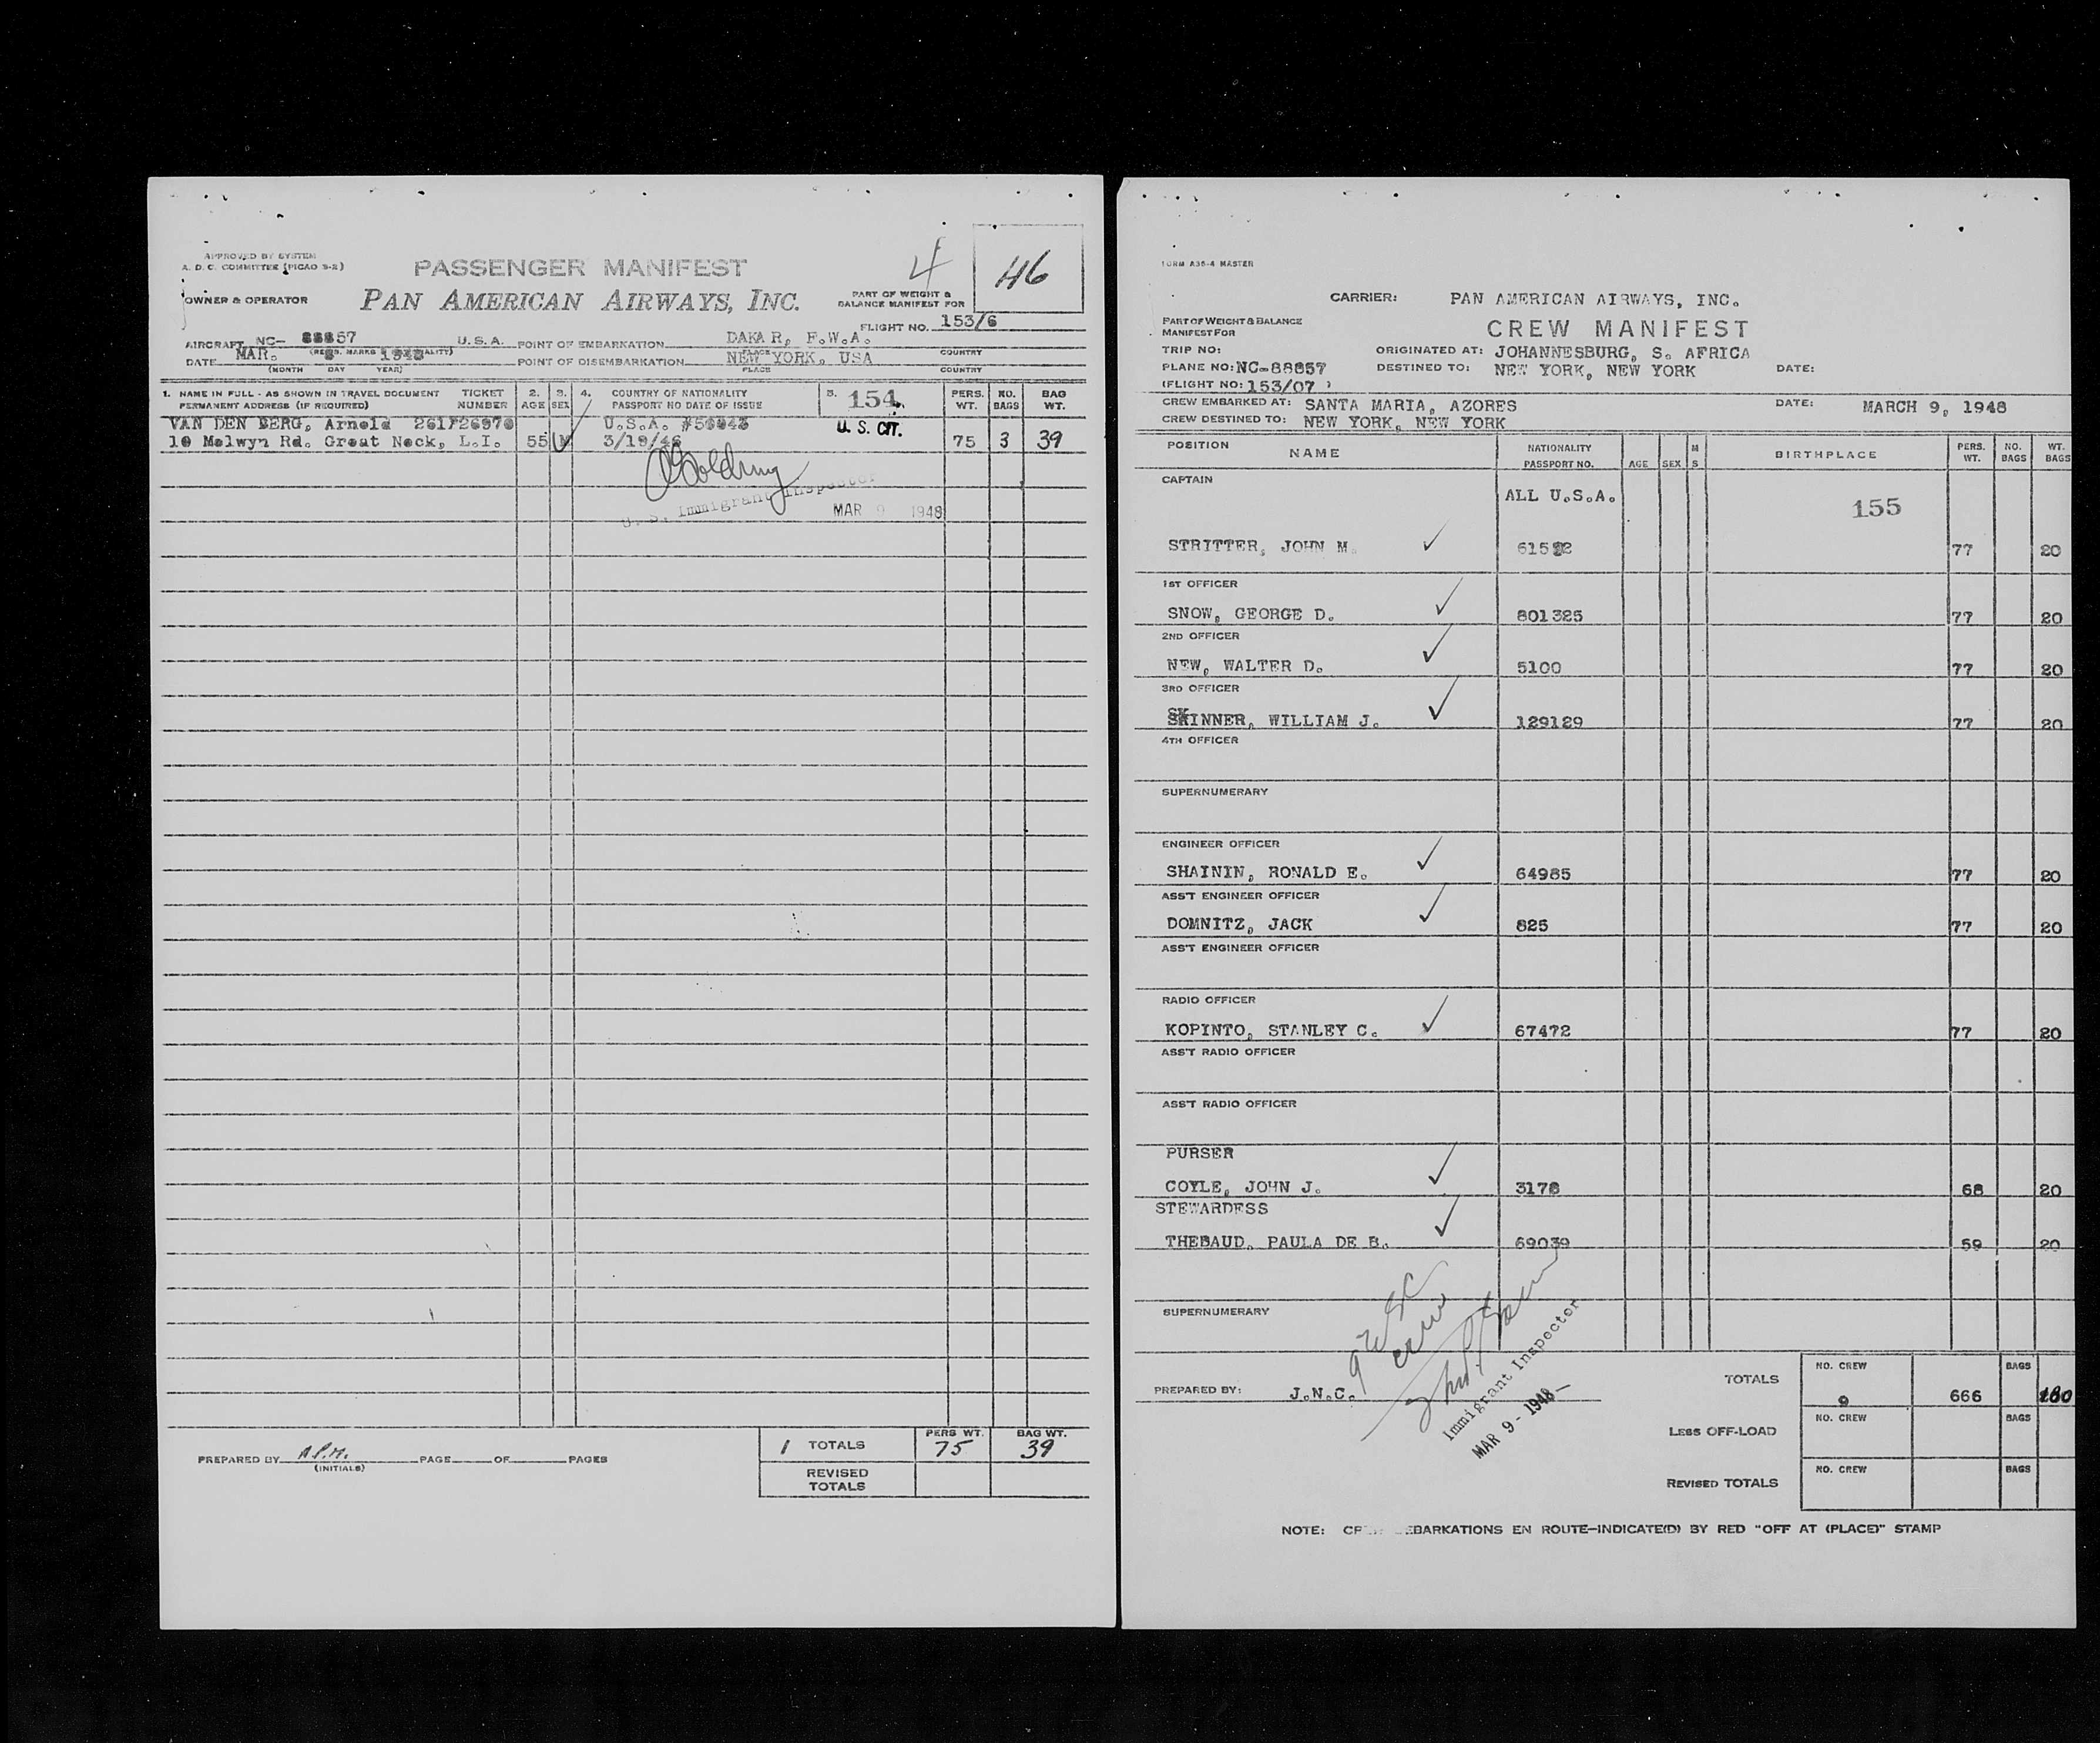 APPROVED BY SYSTEM
A. D. C. COMMITTEE (PICAO 9-2)
PASSENGER MANIFEST
4
46
OWNER & OPERATOR
PAN AMERICAN AIRWAYS, INC.
PART OF WEIGHT &
BALANCE MANIFEST FOR
FLIGHT NO. 153/6
AIRCRAFT NC- 88857 U.S.A. POINT OF EMBARKATION DAKAR, F.W.A.
(REG. MARKS NATIONALITY) PLACE COUNTRY
DATE MAR. 8 1948 POINT OF DISEMBARKATION NEW YORK, USA
(MONTH DAY YEAR) PLACE COUNTRY
1. NAME IN FULL - AS SHOWN IN TRAVEL DOCUMENT TICKET 2. 3. 4. COUNTRY OF NATIONALITY 5. 154 PERS. NO. BAG
PERMANENT ADDRESS (IF REQUIRED) NUMBER AGE SEX PASSPORT NO DATE OF ISSUE WT. BAGS WT.
VAN DEN BERG, Arnold U.S.A. U. S. CIT.
10 Melwyn Rd. Great Neck, L.I. 55 M 3/19/46 75 3 39
U. S. Immigrant Inspector
MAR 9 1948
1 TOTALS PERS WT. 75 BAG WT. 39
PREPARED BY A.P.M. PAGE OF PAGES
(INITIALS)
REVISED
TOTALS
FORM A36-4 MASTER
CARRIER: PAN AMERICAN AIRWAYS, INC.
PART OF WEIGHT & BALANCE
MANIFEST FOR
CREW MANIFEST
TRIP NO: ORIGINATED AT: JOHANNESBURG, S. AFRICA
PLANE NO: NC-88857 DESTINED TO: NEW YORK, NEW YORK DATE:
(FLIGHT NO: 153/07 )
CREW EMBARKED AT: SANTA MARIA, AZORES DATE: MARCH 9, 1948
CREW DESTINED TO: NEW YORK, NEW YORK
POSITION NAME NATIONALITY PASSPORT NO. AGE SEX M S BIRTHPLACE PERS. WT. NO. BAGS WT. BAGS
CAPTAIN
ALL U.S.A. 155
STRITTER, JOHN M. 77 20
1ST OFFICER
SNOW, GEORGE D. 801325 77 20
2ND OFFICER
NEW, WALTER D. 5100 77 20
3RD OFFICER
SKINNER, WILLIAM J. 129129 77 20
4TH OFFICER
SUPERNUMERARY
ENGINEER OFFICER
SHAININ, RONALD E. 64985 77 20
ASS'T ENGINEER OFFICER
DOMNITZ, JACK 825 77 20
ASS'T ENGINEER OFFICER
RADIO OFFICER
KOPINTO, STANLEY C. 67472 77 20
ASS'T RADIO OFFICER
ASS'T RADIO OFFICER
PURSER
COYLE, JOHN J. 3178 68 20
STEWARDESS
THEBAUD, PAULA DE B. 69039 59 20
SUPERNUMERARY
9 USC
crew
Immigrant Inspector
MAR 9 - 1948
PREPARED BY: J.N.C.
TOTALS NO. CREW 9 666 BAGS 180
LESS OFF-LOAD NO. CREW BAGS
REVISED TOTALS NO. CREW BAGS
NOTE: EN ROUTE-INDICATE(D) BY RED "OFF AT (PLACE)" STAMP